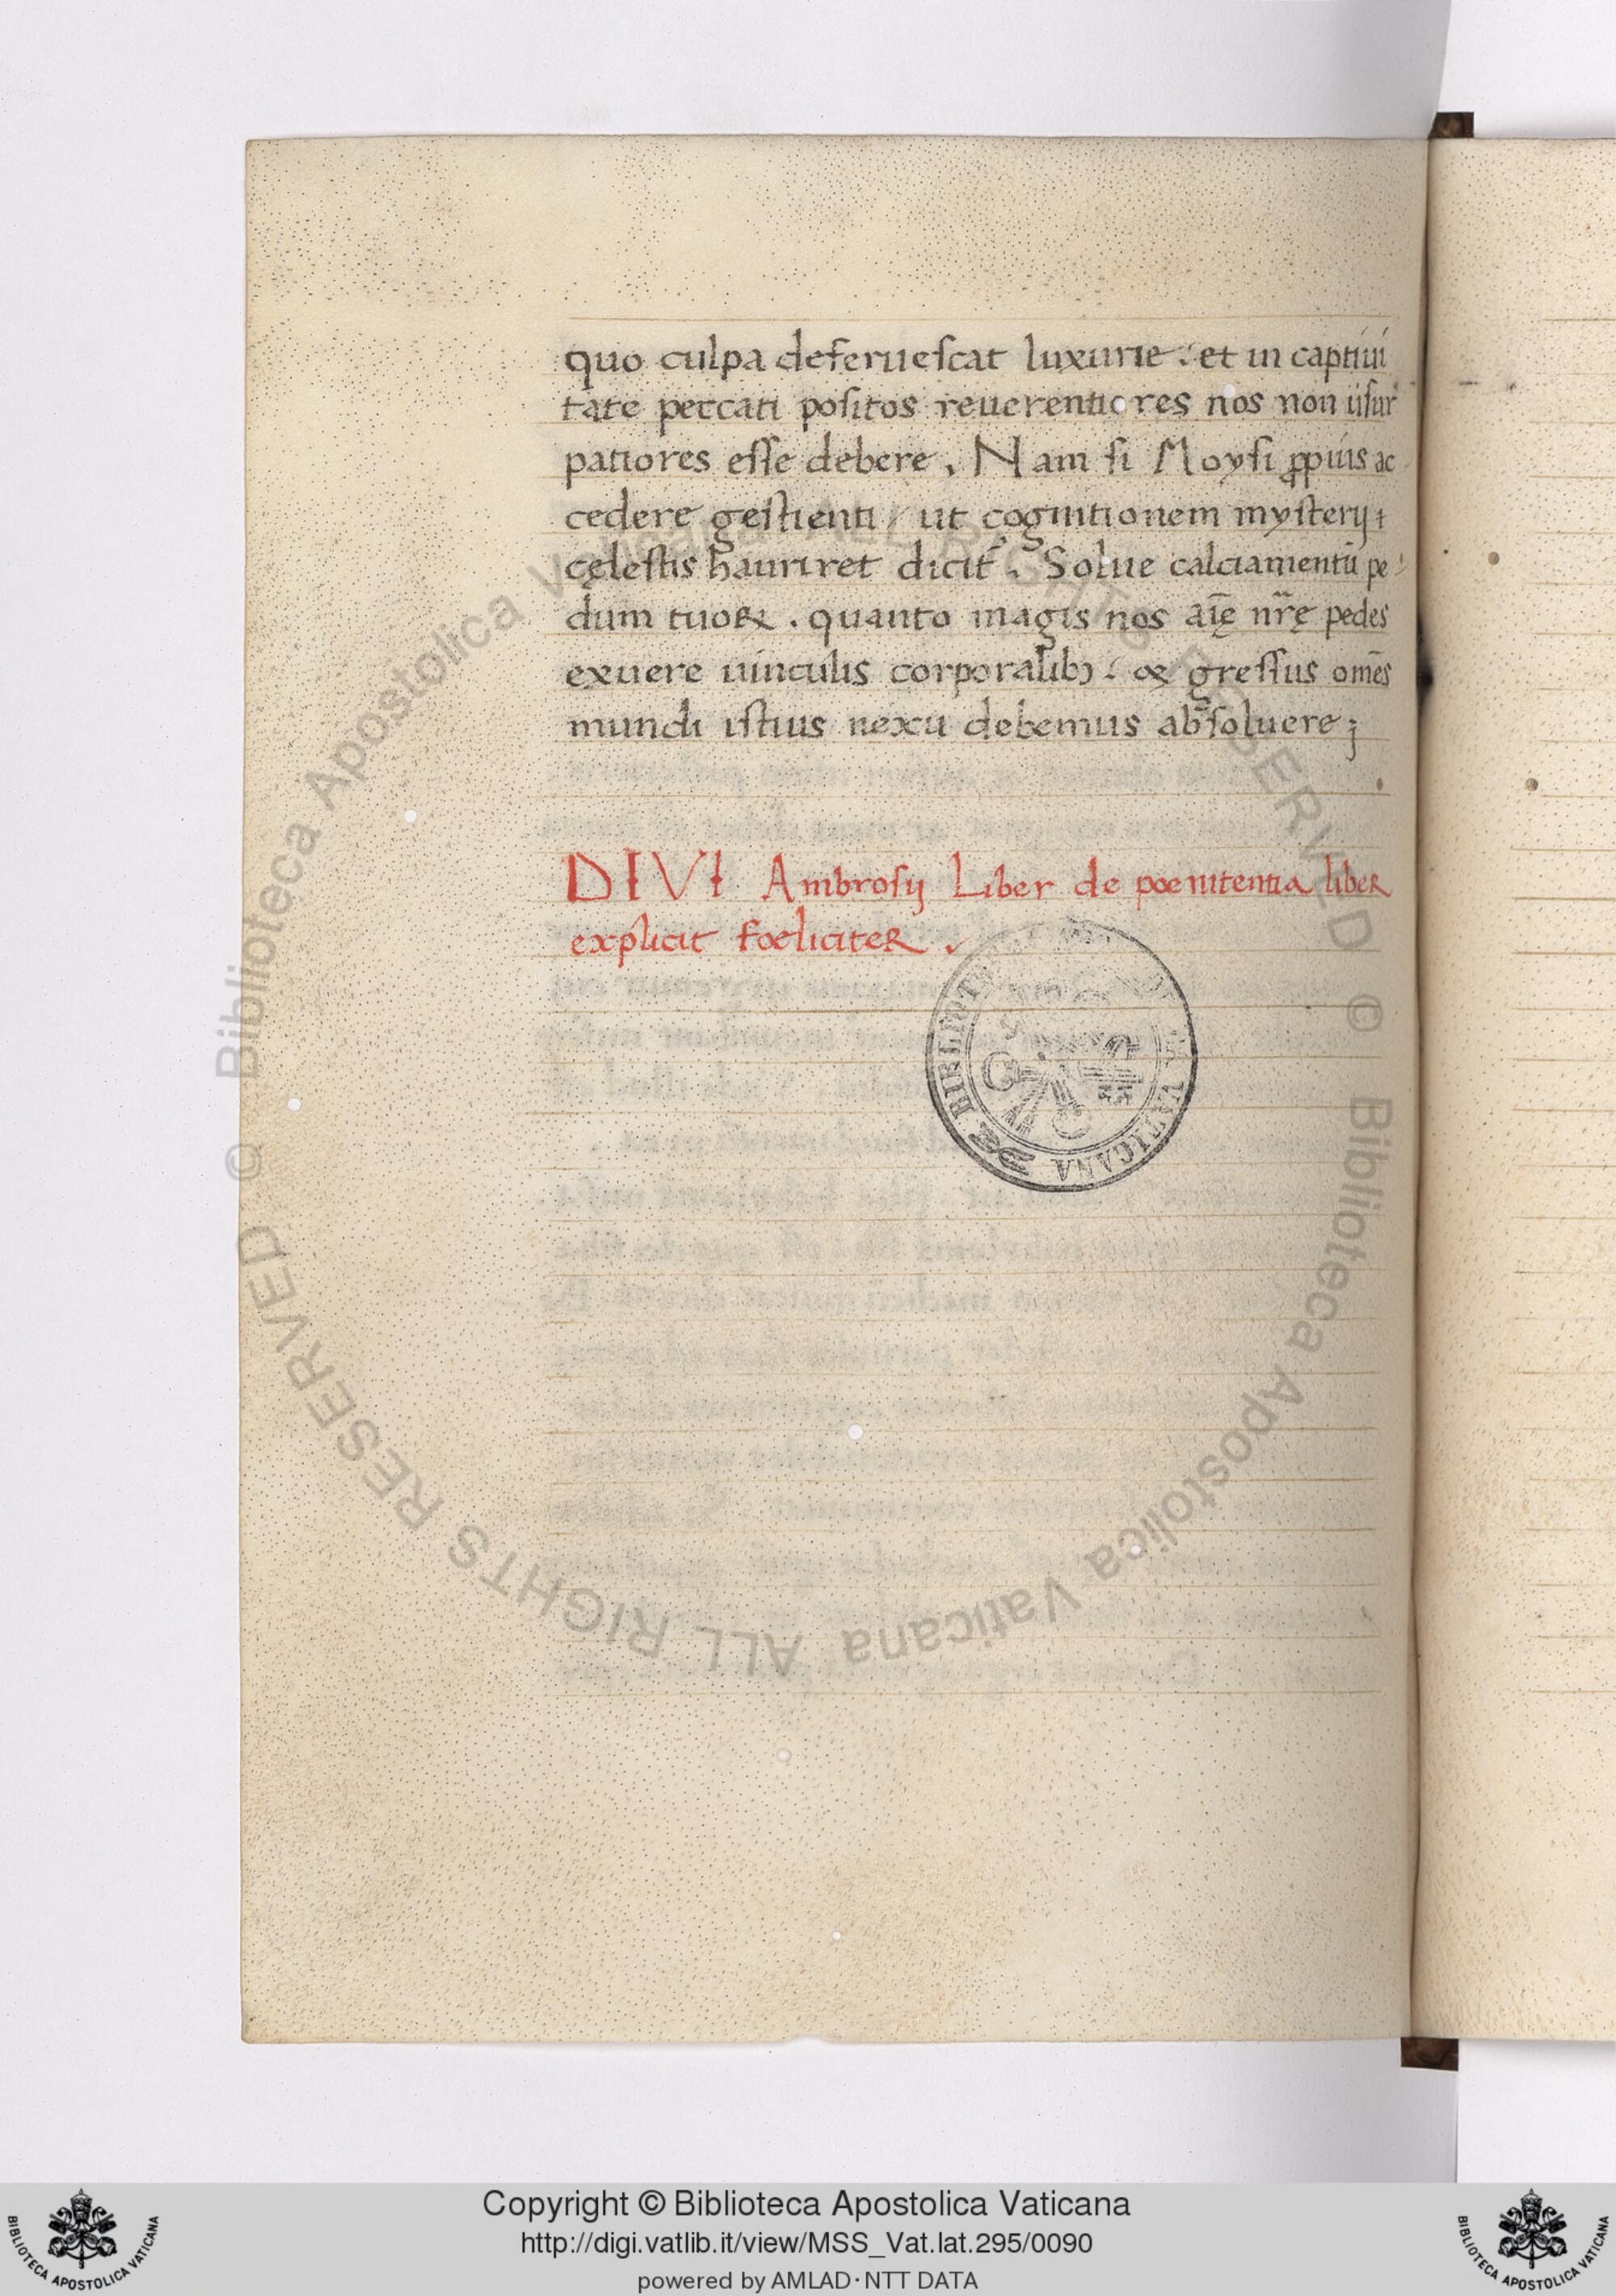 quo culpa deferueſcat luxurie : et in captiui
tate peccati poſitos reuerentiores nos non uſur
patiores eſſe debere . Nam ſi Moyſi ꝓpius ac
cedere geſtienti / ut cognitionem myſterij
cęleſtis hauriret dicit᷑ . Solue calciamentū pe
dum tuoꝝ . quanto magis nos aīę nr̄ę pedes
exuere uinculis corporalibꝫ : & greſſus om̄s
mundi iſtius nexu debemus abſoluere ;
DIVI Ambroſij Liber de poenitentia liber
explicit foeliciter .
BIBLIOTECA VATICANA
© Biblioteca Apostolica Vaticana ALL RIGHTS RESERVED
© Biblioteca Apostolica Vaticana ALL RIGHTS RESERVED
Copyright © Biblioteca Apostolica Vaticana
http://digi.vatlib.it/view/MSS_Vat.lat.295/0090
powered by AMLAD·NTT DATA
BIBLIOTECA APOSTOLICA VATICANA
BIBLIOTECA APOSTOLICA VATICANA